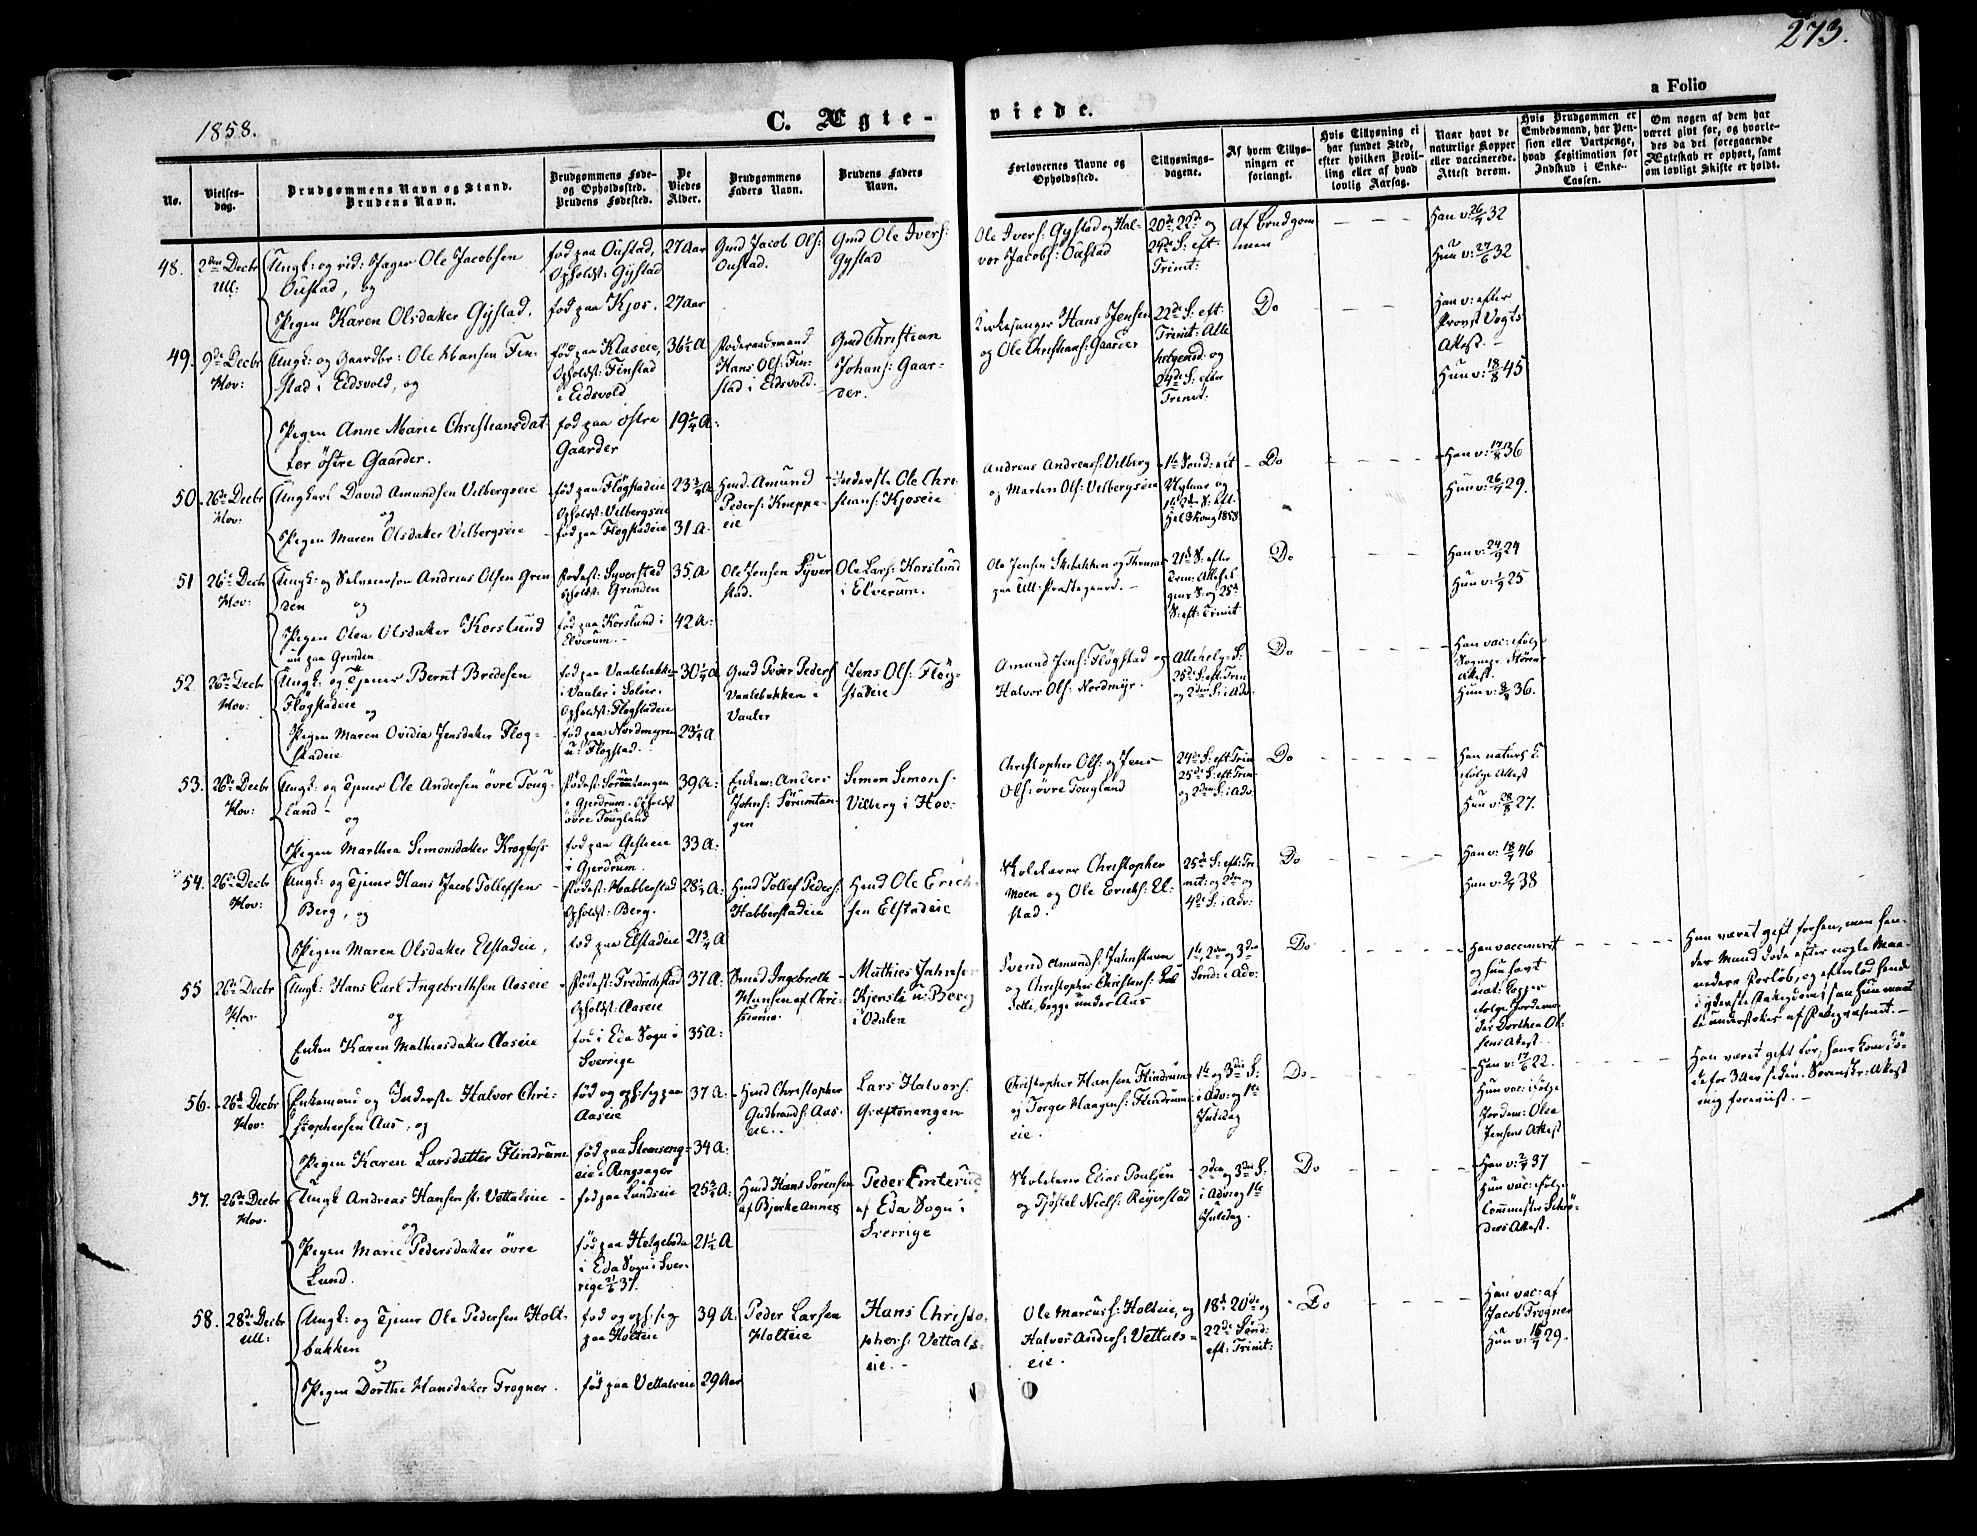 273.
a Folio
1858.
C. Ægte-
viede.
No.
Vielses-
dag.
Brudgommens Navn og Stand.
Brudens Navn.
Brudgommens Føde-
og Opholdssted.
Brudens Fødested.
De
Viedes
Alder.
Brudgommens
Faders Navn.
Brudens Faders
Navn.
Forlovernes Navne og
Opholdssted.
Tillysnings-
dagene.
Af hvem Tillys-
ningen er
forlangt.
Hvis Tillysning ei
har fundet Sted,
efter hvilken Bevil-
ling eller af hvad
lovlig Aarsag.
Naar havt de
naturlige Kopper
eller vaccinerede.
Attest derom.
Hvis Brudgommen er
Embedsmand, har Pen-
sion eller Vartpenge,
hvad Legitimation for
Indskud i Enke-
Cassen.
Om nogen af dem har
været gift før, og hvorle-
des da det foregaaende
Ægteskab er ophørt, samt
om lovligt Skifte er holdt.
48.
2den Decbr
Ull:
Ungk: og rid: Jæger Ole Jacobsen
Oustad, og
Pigen Karen Olsdatter Gystad.
fød paa Oustad,
Opholdst: Gystad
fød paa Kjos.
27 Aar
27 Aar
Gmd Jacob Ols:
Oustad.
Gmd Ole Ivers:
Gystad
Ole Ivers: Gystad og Hal-
vor Jacobs: Oustad
20de 22de og
24de S: eft
Trinit:
Af Brudgom
men
Han v: 26/7 32
Hun v: 27/6 32
49.
9de Decbr
Hov:
Ungk: og Gaardbr: Ole Hansen Fin-
stad i Eidsvold, og
Pigen Anne Marie Christiansdat-
ter östre Gaarder.
fød paa Klaseie,
Opholdst: Finstad
i Eidsvold
fød paa östre
Gaarder
36½ A
19¼ A:
Foderaadsmand
Hans Ols: Fin-
stad i Eidsvold.
Gmd Christian
Johans: Gaar-
der.
Kirkesanger Hans Jensen
og Ole Christians: Gaarder
22de S: eft
Trinit: Alle
helgensd: og
24de S: efter
Trinit:
Do
Han v: efter
Provst Vogts
Attest. -
Hun v: 18/8 45
50.
26de Decbr
Hov:
Ungkarl David Amundsen Velbergseie
og
Pigen Maren Olsdatter Velbergseie
fød paa Flögstadeie
Opholdst: Velbergseie
fød paa Flogstadeie
23¾ A
31 A:
Hmd. Amund
Peders: Kneppe-
eie
Inderste Ole Chri
stians: Kjoseie
Andreas Andreass: Velberg
og Marten Ols: Velbergseie
1ste Sönd: eft
Nytaar og
Do
Han v: 17/8 36
Hun v: 26/9 29.
51
26de Decbr
Hov:
Ungk: og Selveiersön Andreas Olsen Grin
den og
Pigen Olea Olsdatter Korslund
nu paa Grinden
Fødest: Syverstad
Opholdst: Grinden
fød paa Korslund i
Elverum. -
35. A
42 A:
Ole Jonsen Syver
stad.
Ole Lars: Korslund
i Elverum.
paa Ull: Præstegaard. -
21de S: efter
S: eft: Trinit
Do
Han v: 24/9 24
Hun v: 1/9 25
52
26de Decbr
Hov:
Ungk: og Tjener Bernt Bredesen
Flögstadeie
og
Pigen Maren Ovidia Jensdatter Flog-
stadeie
fød paa Vaalebakke
i Vaaler i Solör.
Opholdst: Flogstadeie
fød paa Nordmyren
u: Flogstad.
30¼ A
23¼ A
Gmd Peder Peders
Vaalebakken i
Vaaler
Jens Ols: Flög-
stadeie
Amund Jens: Flögstad og
Halvor Ols: Nordmyr.
Allehelg: S:
25de S: eft: Trin
og 2den S: i Adv:
Do
Han vac: ifölge
Attest.
Hun v: 36.
53.
26de Decbr
Hov:
Ungk: og Tjener Ole Andersen övre Toug-
land -
og
Pigen Marthea Simonsdatter Krogfoss
Fødest: Sörumtangen
i Gjerdrum. Opholdst
övre Tougland
fød paa
i Gjerdrum.
39 A:
33 A:
Enkem: Anders
Johns: Sörumtan-
gen
Simon Simons:
Vilberg i Hov:
Christopher Ols: og Jens
Ols: övre Tougland
24de S: eft Trin
25de S: eft: Trin
og 2den S: i Adv
Do
Han naturl: K:
ifölge Attest
Hun v: 28/8 27.
54.
26de Decbr
Hov:
Ungk: og Tjener Hans Jacob Tollefsen
Berg, og
Pigen Maren Olsdatter Elstadeie,
Fødest: Habberstad
Opholdst: Berg.
fød paa Elstadeie
28¼ A:
21¾ A
Hmd Tollef Peders:
Habberstadeie
Hmd Ole Erich-
sen Elstadeie
Skolelærer Christopher
Moen og Ole Erichs: El-
stad.
25de S: eft: Tri
nit: og 2den og
4de S: i Adv:
Do
Han v: 18/7 46
Hun v: 2/7 38
55
26de Decbr
Hov.
Ungk: Hans Carl Ingebrethsen Aaseie
og
Enken Karen Mathiesdatter Aaseie
Fødest: Fredrichstad
Opholdst: Aaseie
fød i Eda Sogn i
Sverrige
37 A:
35 A:
Smed Ingebreth
Hansen af Chri-
stiania.
Mathies Jahnsen
u: Berg
i Odalen
Svend Amunds: Jahnstuen
og Christopher Christens:
begge under Aas
1ste, 2den og 3die
Sönd: i Adv:
Do
Han vaccineret
og hun havt
nat: Kopper
ifölge Jordemo-
der Dorthea Ol-
sens Attest.
Hun været gift forhen, men hen-
des Mand döde efter nogle Maa-
neders Forlöb, og efterlod hende
i yderste Fattigdom, saa hun maat
te understöttes af Fattigvæsenet. -
56.
26de Decbr
Hov:
Enkemand og Inderste Halvor Chri-
stophersen Aas, og
Pigen Karen Larsdatter Flindrum
fød og oph: sig paa
Aaseie
fød paa Stenseng-
eie i Ringsager
37 A:
34 A:
Hmd Christopher
Gudbrands: Aas-
eie.
Lars Halvors:
Christopher Hansen Flindrum
og Torger Haagens: Flindrums:
eie.
1ste og 3die S:
i Adv: og 1ste
Juledag
Do
Han v: 17/6 22.
Hun vac: ifölge
Jordem: Olea
Jensens Attest
Han været gift för, hans Kone dö-
de for 3 Aar siden. Skifteretts: Attest
mig foreviist. -
57.
26de Decbr
Hov.
Ungk Andreas Hansen fr. Vettaleie
og
Pigen Marie Pedersdatter övre
Lund.
fød paa Lundseie
fød paa Helgeboda
i Eda Sogn i Sver-
rige 21/5 37.
25¾ A:
21½ A
Hmd Hans Sörensen
af Bjerke Annex
Peder Emterud
af Eda Sogn i
Sverrige
Skolelærer Elias Poulsen
og Tjöstel Neels: Reyerstad
2den og 3die S:
i Adv: og 1ste
Juledag.
Do
Han v: 2/7 37
Hun vac: ifölge
ders Attest.
58.
28de Decbr
Ull:
Ungk: og Tjener Ole Pedersen Holt-
bakken
og
Pigen Dorthe Hansdatter Trogner.
fød og oph: sig
paa Holteie
fød paa Vettaleie
39 A:
29 Aar
Peder Larsen
Holteie
Hans Christo-
phers: Vettals-
eie. -
Ole Marcus: Holteie, og
Halvor Anders: Vettals-
eie.
18de 20de og
22de Sönd:
eft: Trinit:
Do
Han vac: af
Jacob Trogner
Hun v: 16/7 29.